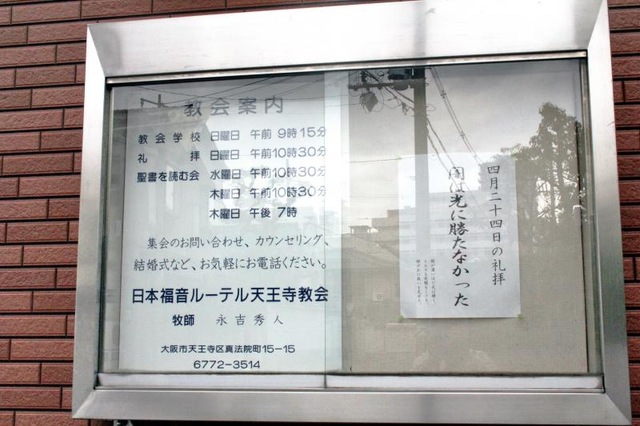 教会案内
教会学校 日曜日 午前9時15分
礼拝 日曜日 午前10時30分
聖書を読む会 水曜日 午前10時30分
木曜日 午前10時30分
木曜日 午後7時
集会のお問い合わせ、カウンセリング、
結婚式など、お気軽にお電話ください。
日本福音ルーテル天王寺教会
牧師 永吉秀人
大阪市天王寺区真法院町15-15
6772-3514
四月二十四日の礼拝
闇は光に勝たなかった